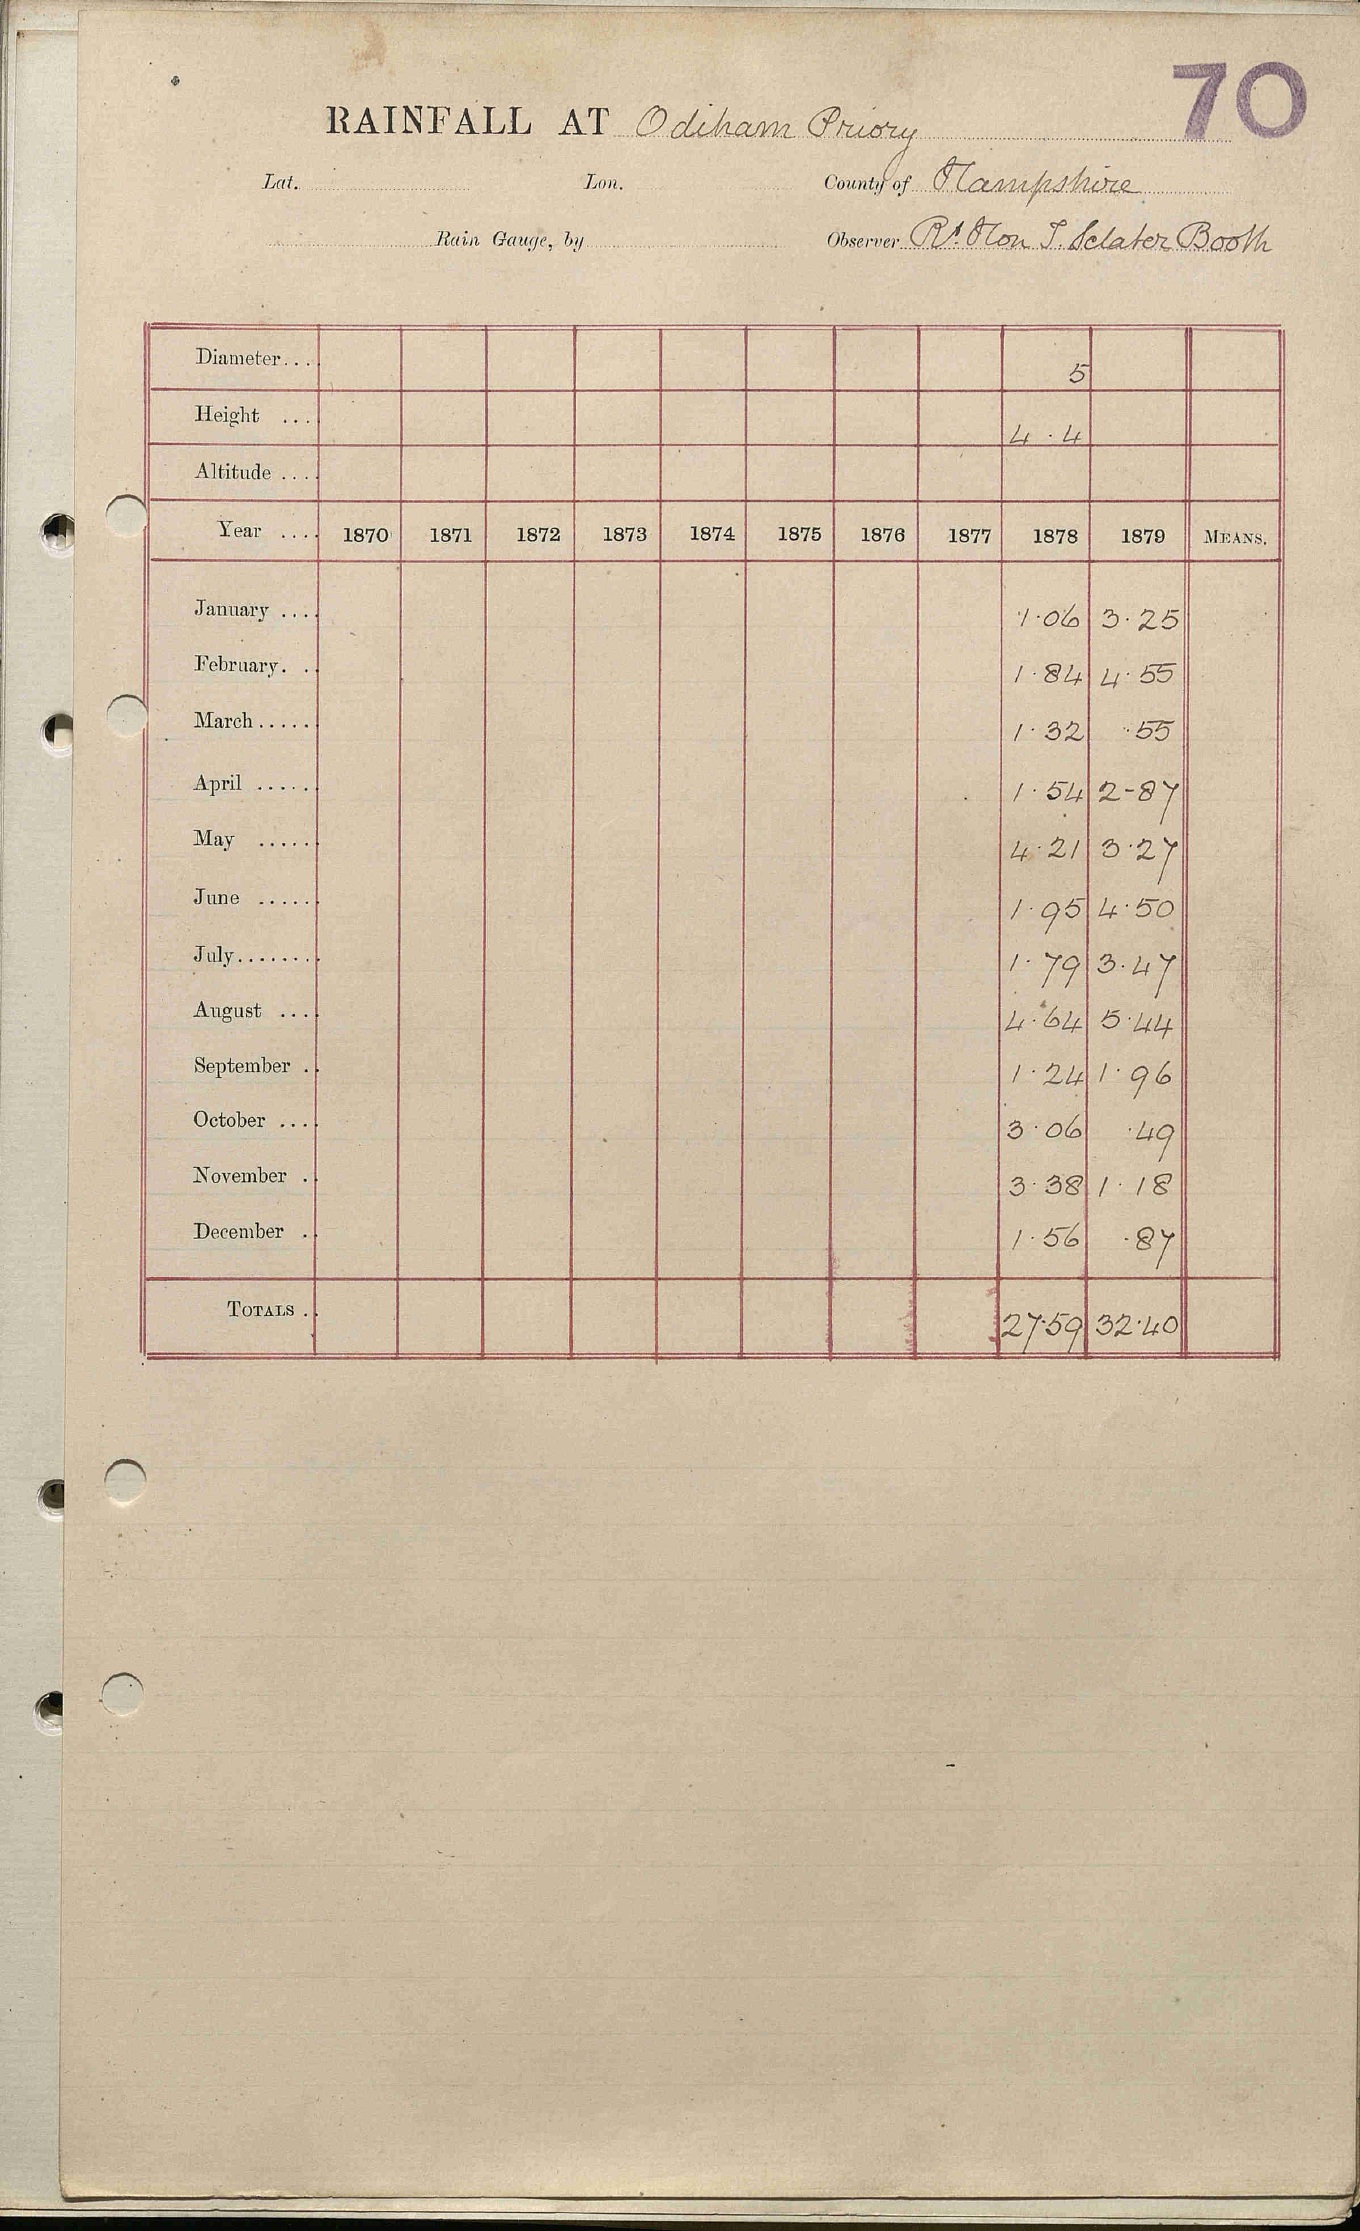 70
RAINFALL AT Odiham Priory
Lat. Lon. County of Hampshire
Rain Gauge, by Observer Rt. Hon J. Sclater Booth
Diameter.... 5
Height .... 4 . 4
Altitude ....
Year .... 1870 1871 1872 1873 1874 1875 1876 1877 1878 1879 MEANS.
January .... 1.06 3.25
February. .. 1.84 4.55
March ...... 1.32 .55
April ...... 1.54 2-87
May ...... 4.21 3.27
June ...... 1.95 4.50
July........ 1.79 3.47
August .... 4.64 5.44
September .. 1.24 1.96
October .... 3.06 .49
November .. 3.38 1.18
December .. 1.56 .87
TOTALS .. 27.59 32.40